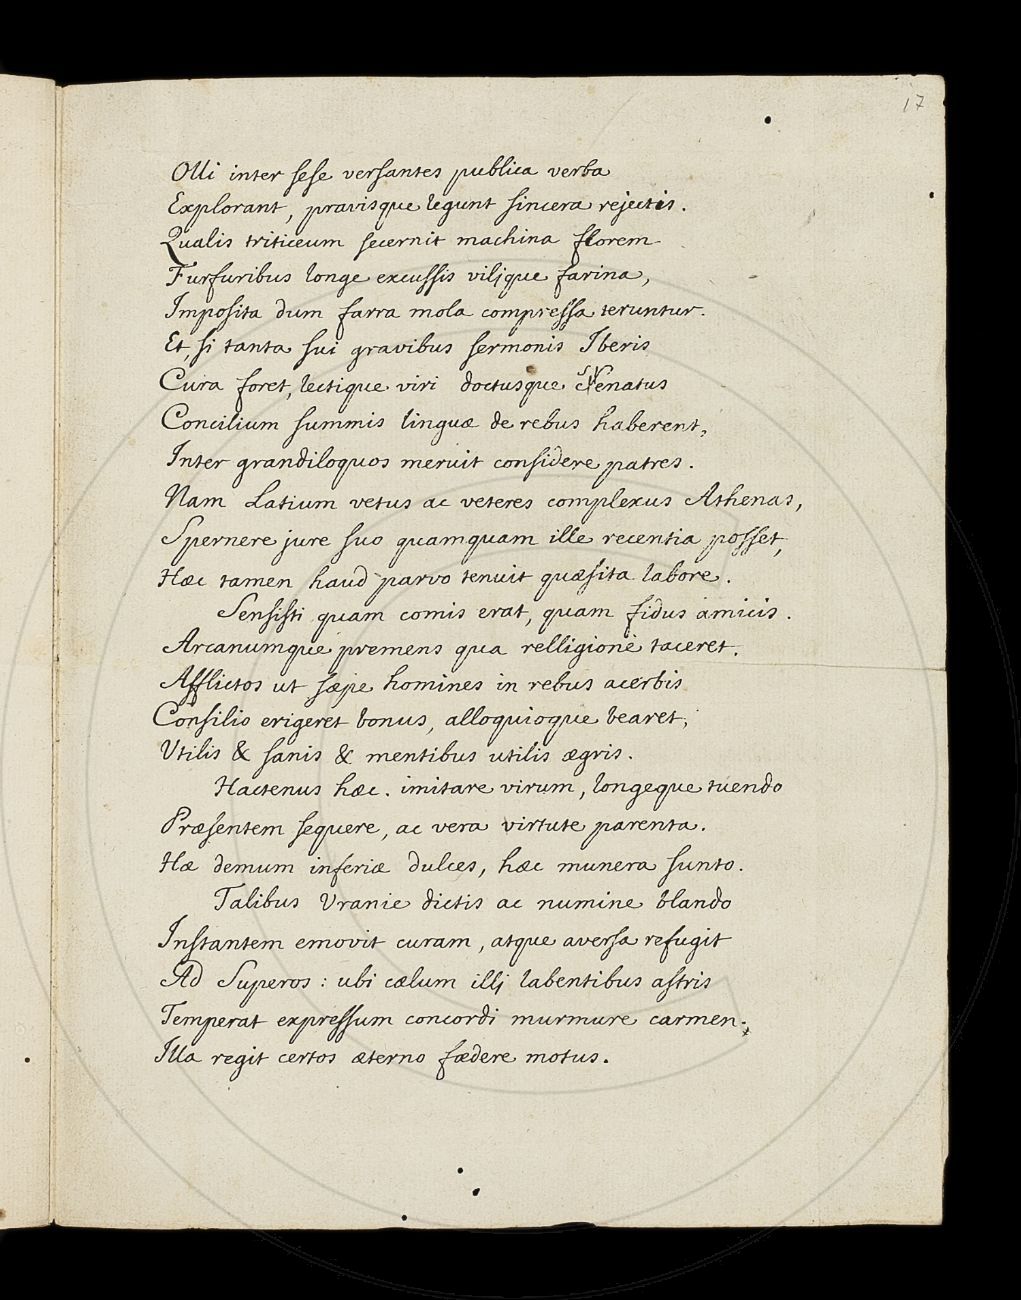 17
Olli inter sese versantes publica verba
Explorant, pravisque legunt sincera rejectis.
Qualis triticeum secernit machina florem
Furfuribus longe excussis vilique farina,
Imposita dum farra mola compressa teruntur.
Et, si tanta sui gravibus sermonis Iberis
Cura foret, lectique viri doctusque Senatus
Concilium summis linguæ de rebus haberent,
Inter grandiloquos meruit considere patres.
Nam Latium vetus ac veteres complexus Athenas,
Spernere jure suo quamquam ille recentia posset,
Hæc tamen haud parvo tenuit quæsita labore.
Sensisti quam comis erat, quam fidus amicis.
Arcanumque premens qua relligione taceret.
Afflictos ut sæpe homines in rebus acerbis
Consilio erigeret bonus, alloquioque bearet,
Utilis & sanis & mentibus utilis ægris.
Hactenus hæc. imitare virum, longeque tuendo
Præsentem sequere, ac vera virtute parenta.
Hæ demum inferiæ dulces, hæc munera sunto.
Talibus Uranie dictis ac numine blando
Instantem emovit curam, atque aversa refugit
Ad Superos: ubi cælum illi labentibus astris
Temperat expressum concordi murmure carmen;
Illa regit certos æterno fædere motus.